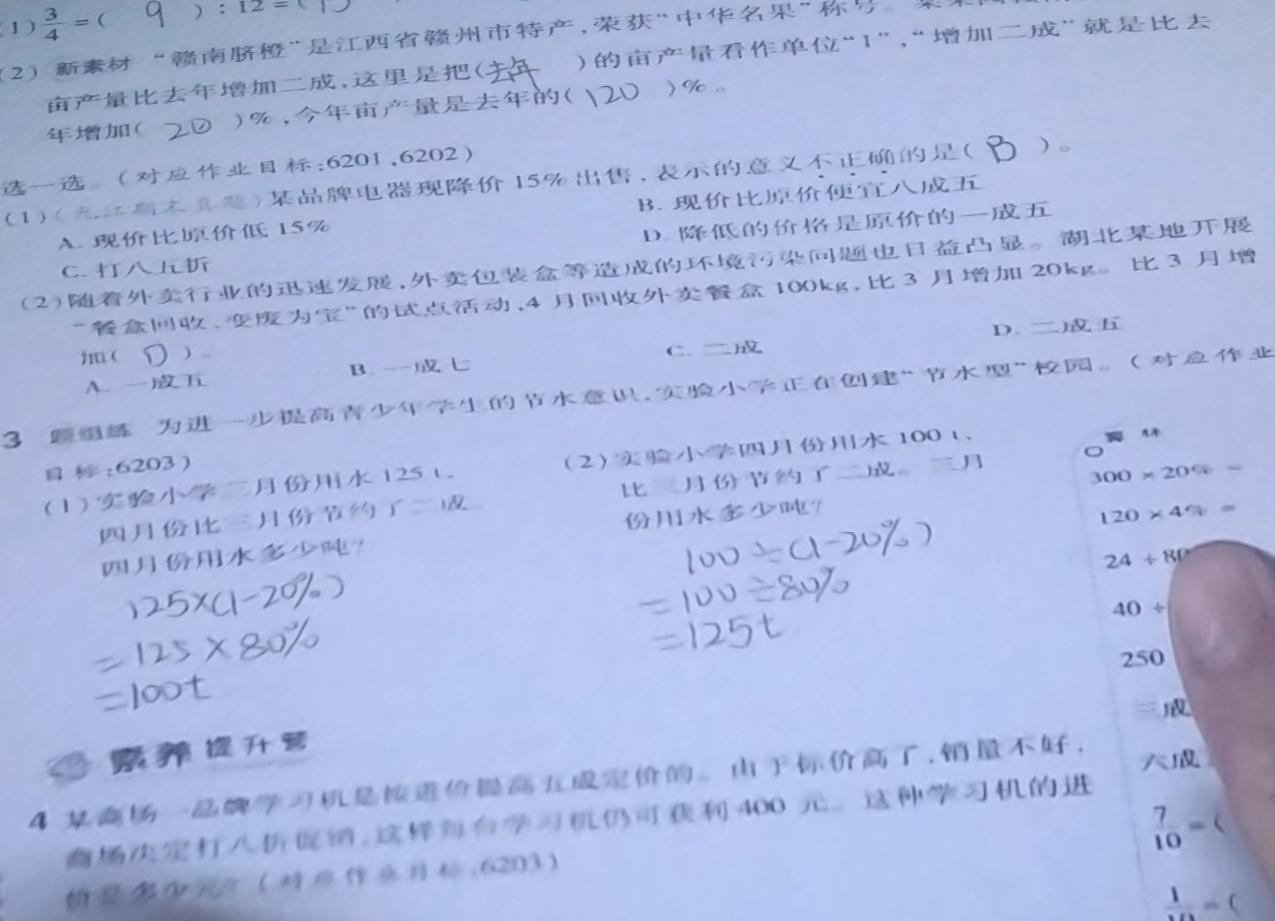 (1) 3/4 = ( 9 ) : 12 = (
(2) 新素材 “赣南脐橙”是江西省赣州市特产,荣获“中华名果”称号。
亩产量比去年增加二成,这里是把(去年 )的亩产量看作单位“1”,“增加二成”就是比去
年增加( 20 )%,今年亩产量是去年的( 120 )%。
选一选。(对应作业目标:6201,6202)
(1)(九江期末真题)某品牌电器现降价 15% 出售,表示的意义不正确的是( B )。
A. 现价比原价低 15% B. 现价比原价便宜八成五
C. 打八五折 D. 降低的价格是原价的一成五
(2)随着外卖行业的迅速发展,外卖包装盒等造成的环境污染问题也日益凸显。湖北某地开展
“餐盒回收,变废为宝”的试点活动,4 月回收外卖餐盒 100kg,比 3 月增加 20kg。比 3 月增
加( D )。
A. 一成五 B. 一成七 C. 二成 D. 二成五
3 题组练 为进一步提高青少年学生的节水意识,实验小学正在创建“节水型”校园。(对应作业
目标:6203)
(1)实验小学三月份用水 125 t,
四月份比三月份节约了二成。
四月份用水多少吨?
125×(1-20%)
=125×80%
=100t
(2)实验小学四月份用水 100 t,
比三月份节约了二成。三月
份用水多少吨?
100÷(1-20%)
=100÷80%
=125t
算 林
300 × 20% =
120 × 4% =
24 ÷
40 ÷
250
三成
六成
7/10 = (
= (
素养提升营
4 某商场一品牌学习机是按进价提高五成定价的。由于标价高了,销量不好,
商场决定打八折促销,这样每台学习机仍可获利 400 元。这种学习机的进
价是多少元?(对应作业目标:6203)